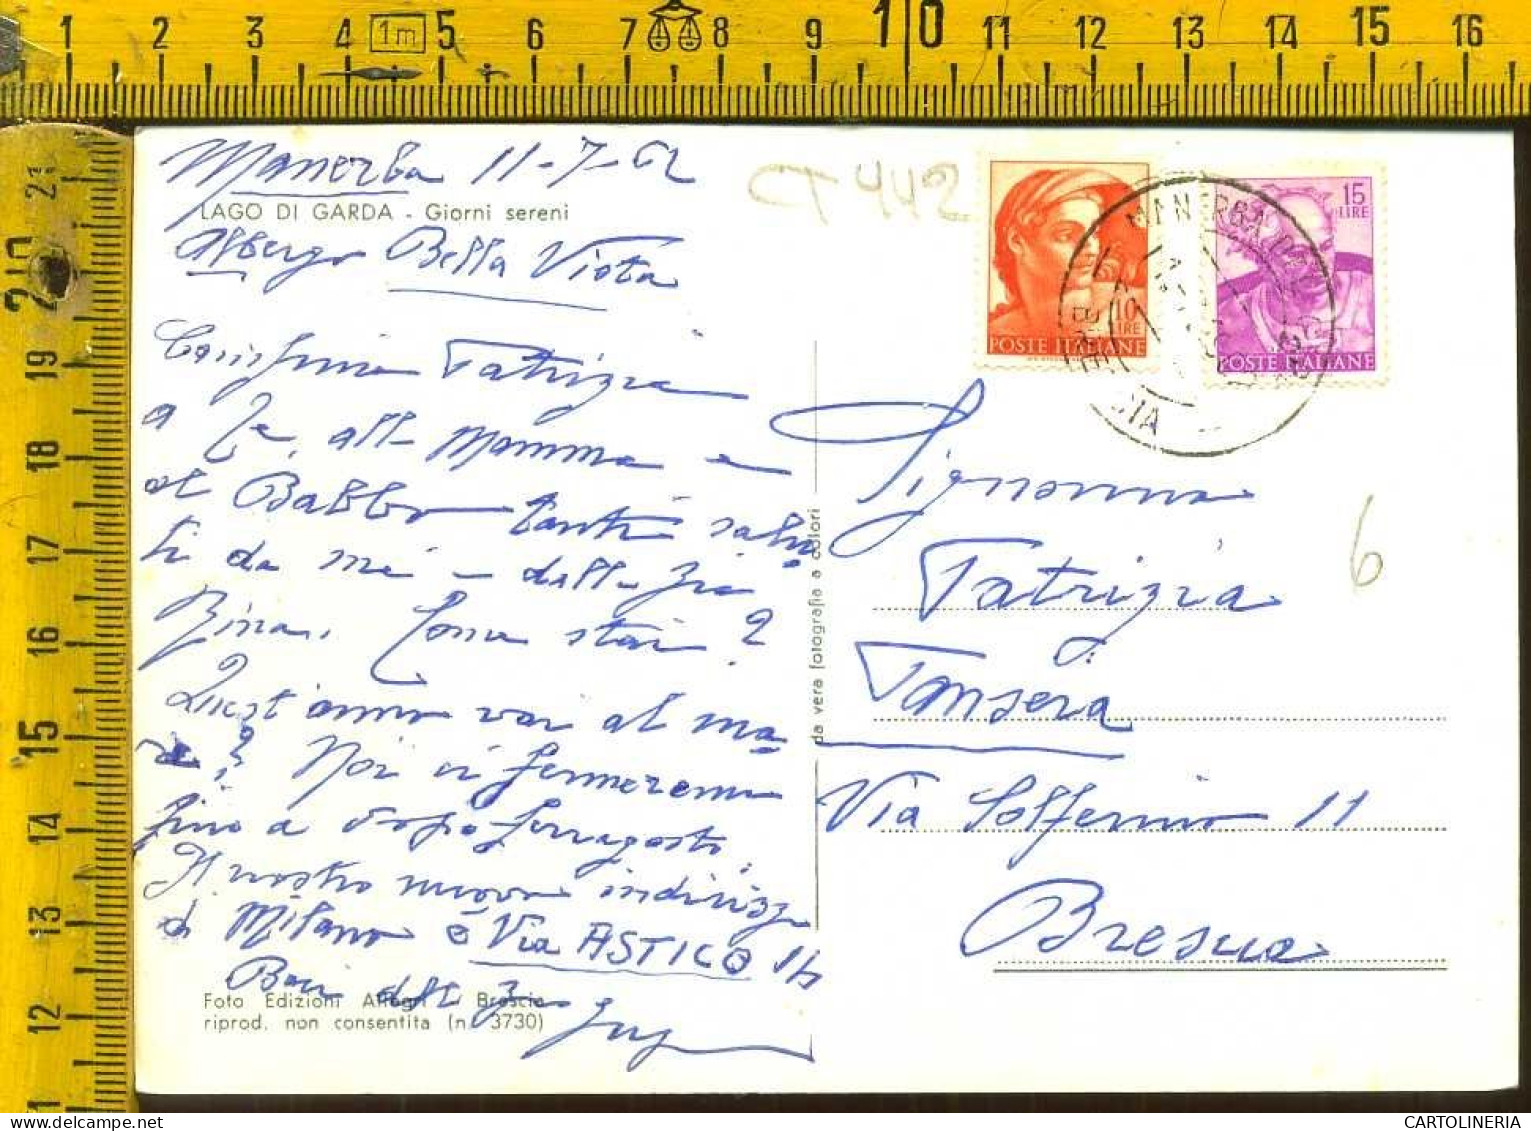 1 2 3 4 1m 5 6 7 8 9 10 11 12 13 14 15 16
21
20
19
18
17
16
15
14
13
12
11
Manerba 11-7-62
LAGO DI GARDA - Giorni sereni
Albergo Bella Vista
Carissima Patrizia
a Te, alla Mamma e
al Babbo tanti salu-
ti da me e dalla zia
Rina. Come stai?
Quest'anno vai al ma-
re? Noi ci fermeremo
fino a dopo ferragosto.
Il nostro nuovo indirizzo
di Milano è Via ASTICO
Baci dalla Zia
Foto Edizioni Allegri - Brescia
riprod. non consentita (n. 3730)
da vera fotografia a colori
CT 442
10 LIRE
POSTE ITALIANE
15 LIRE
POSTE ITALIANE
MANERBA DEL GARDA
BRESCIA
6
Signorina
Patrizia
Tansera
Via Solferino 11
Brescia
CARTOLINERIA